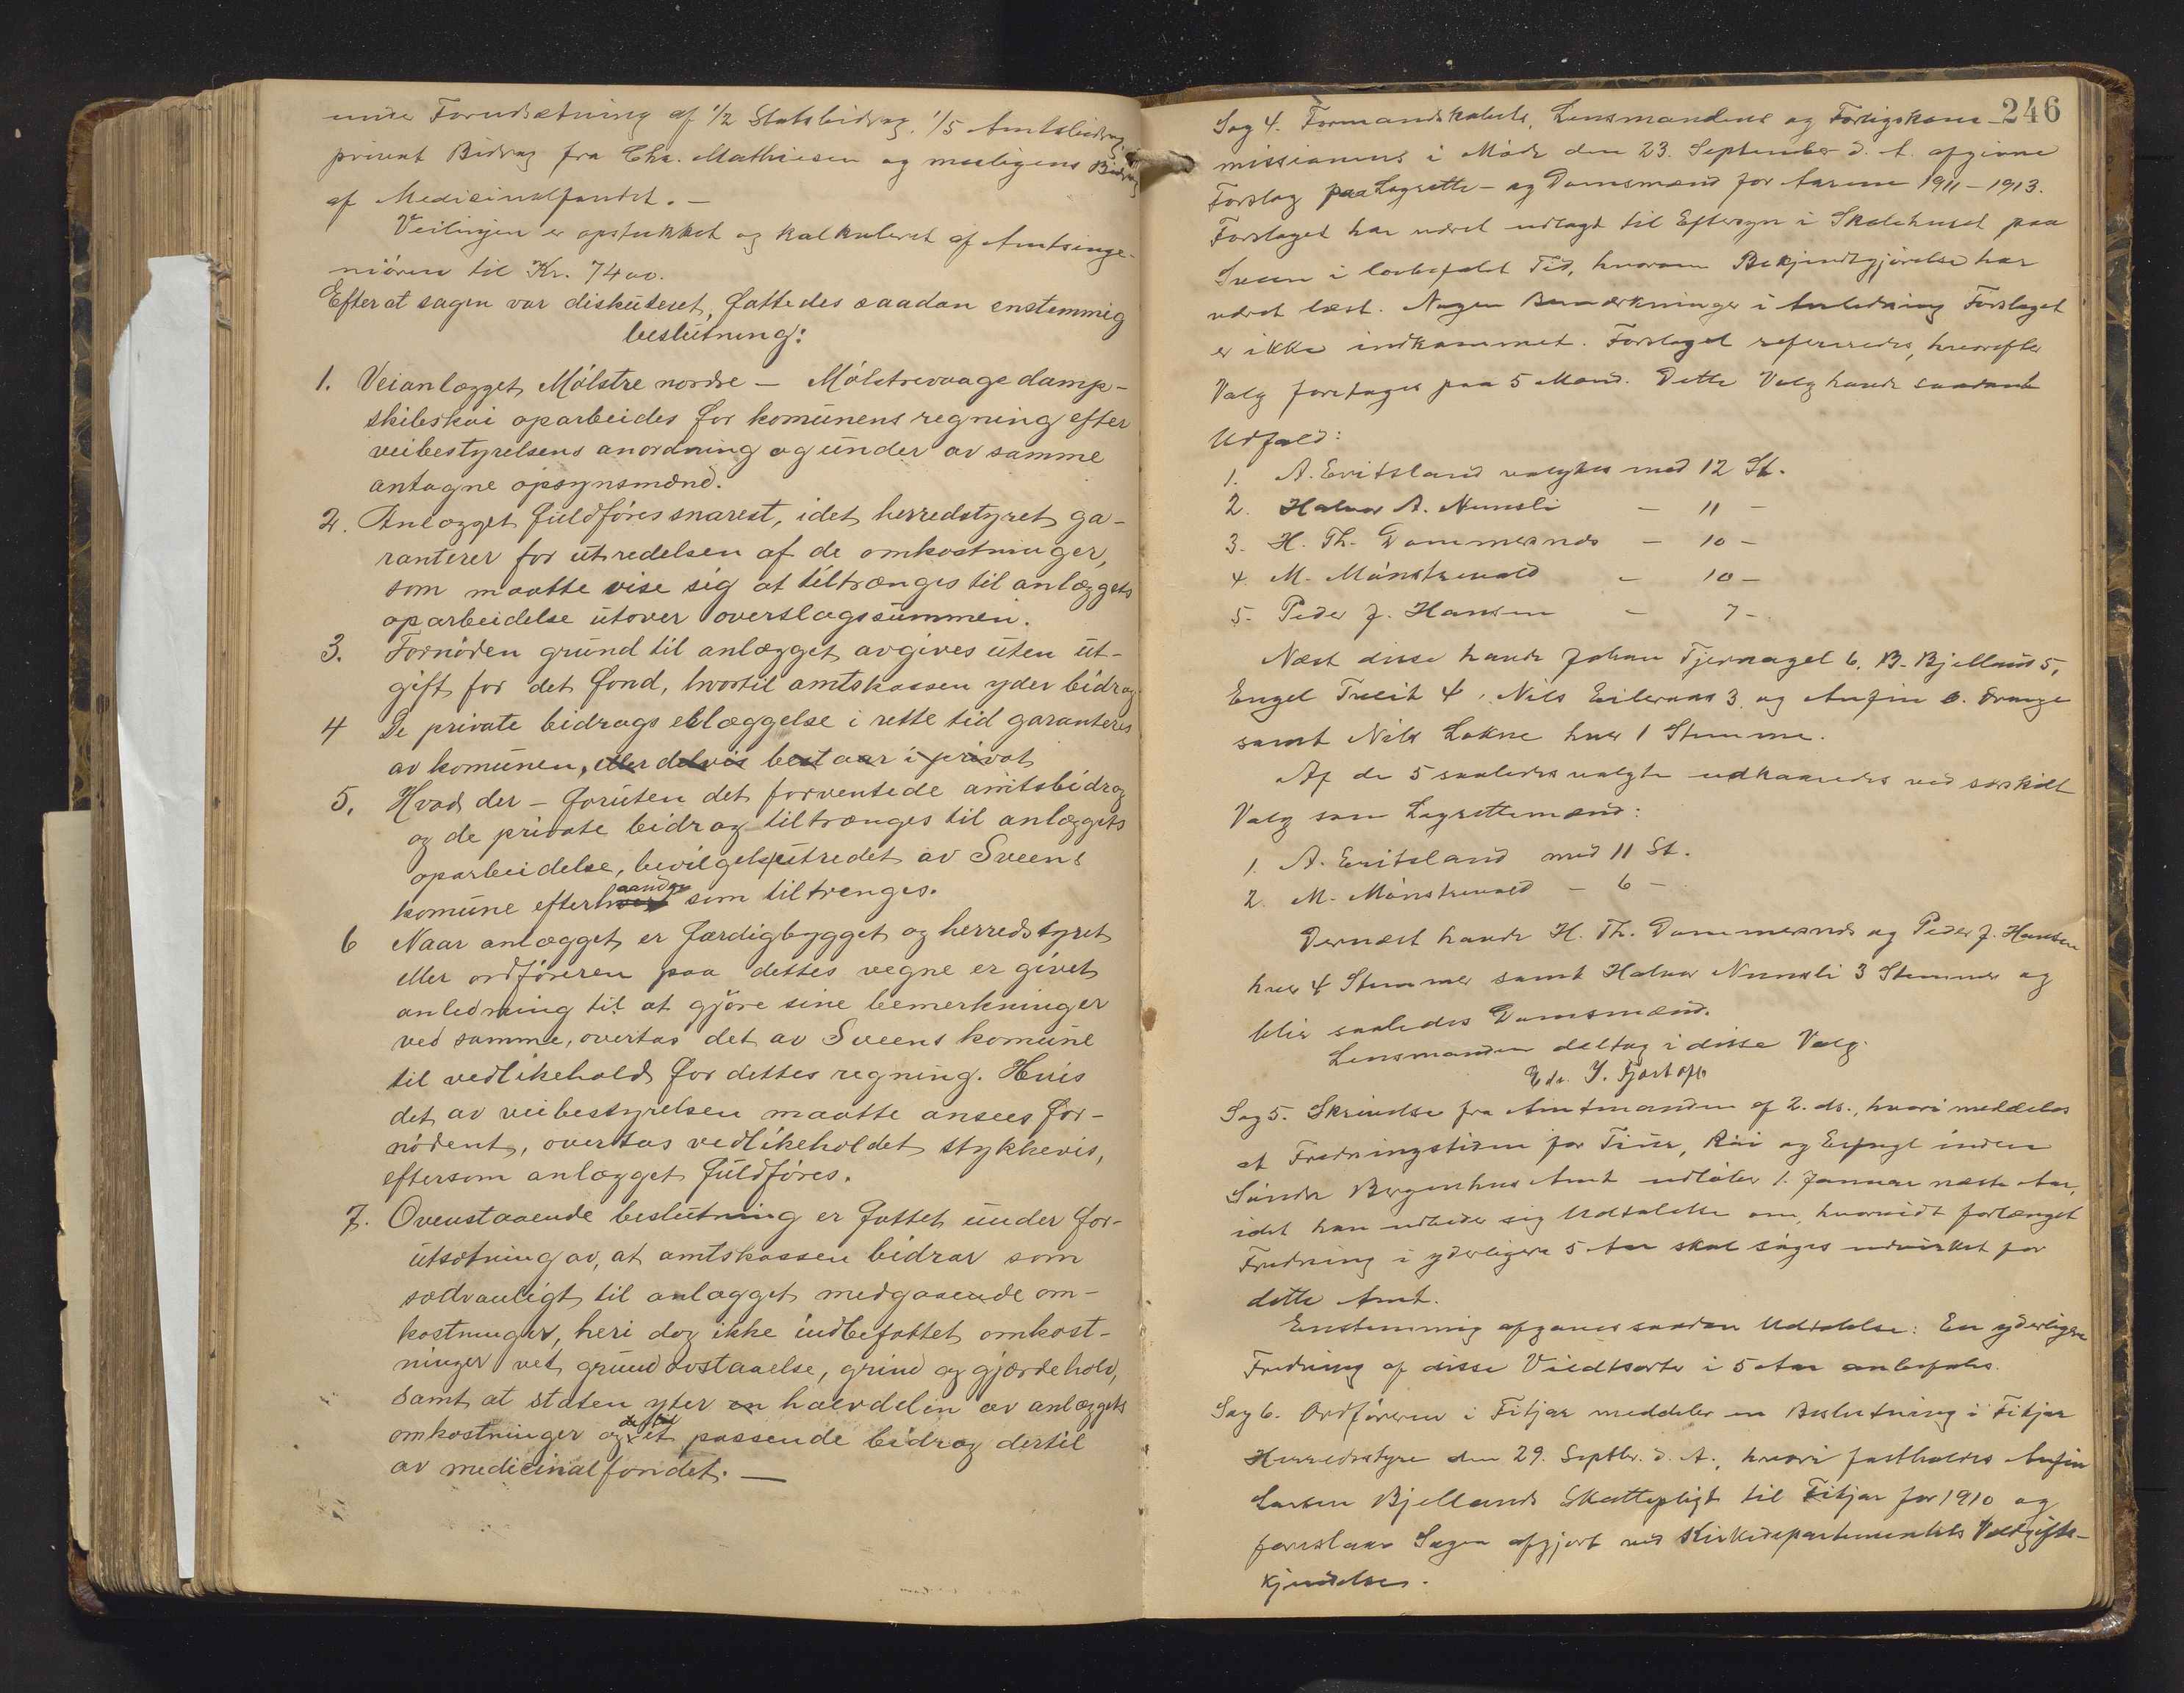 under Forudsætning af 1/2 Statsbidrag, 1/5 Amtsbidrag,
privat Bidrag fra Chr. Mathiesen og muligens Bidrag
af Medicinalfondet. —
Veilinjen er opstukket og kalkuleret af Amtsinge-
niören til Kr. 7400.
Efter at sagen var diskuteret, fattedes saadan enstemmig
beslutning:
1. Veianlægget Mölstre nordre — Mölstrevaage damp-
skibskai oparbeides for komunens regning efter
veibestyrelsens anordning og under av samme
antagne opsynsmænd.
2. Anlægget fuldföres snarest, idet herredstyret ga-
ranterer for utredelsen af de omkostninger,
som maatte vise sig at tiltrænges til anlæggets
oparbeidelse utover overslagssummen.
3. Fornöden grund til anlægget avgives uten ut-
gift for det fond, hvortil amtskassen yder bidrag
4 De private bidrags erlæggelse i rette tid garanteres
av komunen, eller delvis bestaar i privat
5. Hvad der — foruten det forventede amtsbidrag
og de private bidrag tiltrænges til anlæggets
oparbeidelse, bevilges utredet av Sveens
komune efterhaanden som tiltrenges.
6 Naar anlægget er færdigbygget og herredstyret
eller ordföreren paa dettes vegne er givet
anledning til at gjöre sine bemerkninger
ved samme, overtas det av Sveens komune
til vedlikehold for dettes regning. Hvis
det av veibestyrelsen maatte ansees for-
nödent, overtas vedlikeholdet stykkevis,
eftersom anlægget fuldföres.
7. Ovenstaaende beslutning er fattet under for-
utsætning av, at amtskassen bidrar som
sædvanligt til anlægget medgaaende om-
kostninger, heri dog ikke indbefattet omkost-
ninger ved grundavstaaelse, grind og gjærdehold,
samt at staten yter en halvdelen av anlæggets
omkostninger og et passende bidrag dertil
av medicinalfondet. —
246
Sag 4. Formandskabets, Lensmandens og Forligskom-
missionens i Möde den 23. September d. A. afgivne
Forslag paa Lagrette- og Domsmænd for Aarene 1911-1913.
Forslaget har været udlagt til Eftersyn i Skolehuset paa
Sveen i lovbefalet Tid, hvorom Bekjendtgjörelse har
været læst. Nogen Bemærkninger i Anledning Forslaget
er ikke indkommet. Forslaget refereredes, hvorefter
Valg foretoges paa 5 Mænd. Dette Valg havde saadant
Udfald:
1. A. Eritsland valgtes med 12 St.
2. Halvor A. Numsli — 11 —
3. H. Th. Dommersnes — 10 —
4. M. Mönstrevold — 10 —
5. Peder J. Hansen — 7 —
Næst disse havde Johan Tjernagel 6, B. Bjelland 5,
Engel Tveit 4, Nils Eileraas 3 og Anfin O. Vrange
samt Nils Lokne hver 1 Stemme.
Af de 5 saaledes valgte udkaaredes ved særskilt
Valg som Lagrettemænd:
1. A. Eritsland med 11 St.
2. M. Mönstrevold — 6 —
Dernæst havde H. Th. Dommersnes og Peder J. Hansen
hver 4 Stemmer samt Halvor Numsli 3 Stemmer og
blir saaledes Domsmænd.
Lensmanden deltog i disse Valg.
Edv. J. Fjørtoft
Sag 5. Skrivelse fra Amtmanden af 2. ds., hvori meddeles
at Fredningstiden for Tiur, Röi og Erfugl inden
Söndre Bergenhus Amt udlöber 1. Januar næste Aar,
idet han udbeder sig Udtalelse om, hvorvidt forlænget
Fredning i yderligere 5 Aar skal söges udvirket for
dette Amt.
Enstemmig afgaves saadan Udtalelse: En yderligere
Fredning af disse Vildtsorter i 5 Aar anbefales.
Sag 6. Ordföreren i Fitjar meddeler en Beslutning i Fitjar
Herredsstyre den 29. Septbr. d. A., hvori fastholdes Anfin
Larsen Bjellands Skattepligt til Fitjar for 1910 og
foreslaar Sagen afgjort ved Kirkedepartementets Voldgifts-
kjendelse.